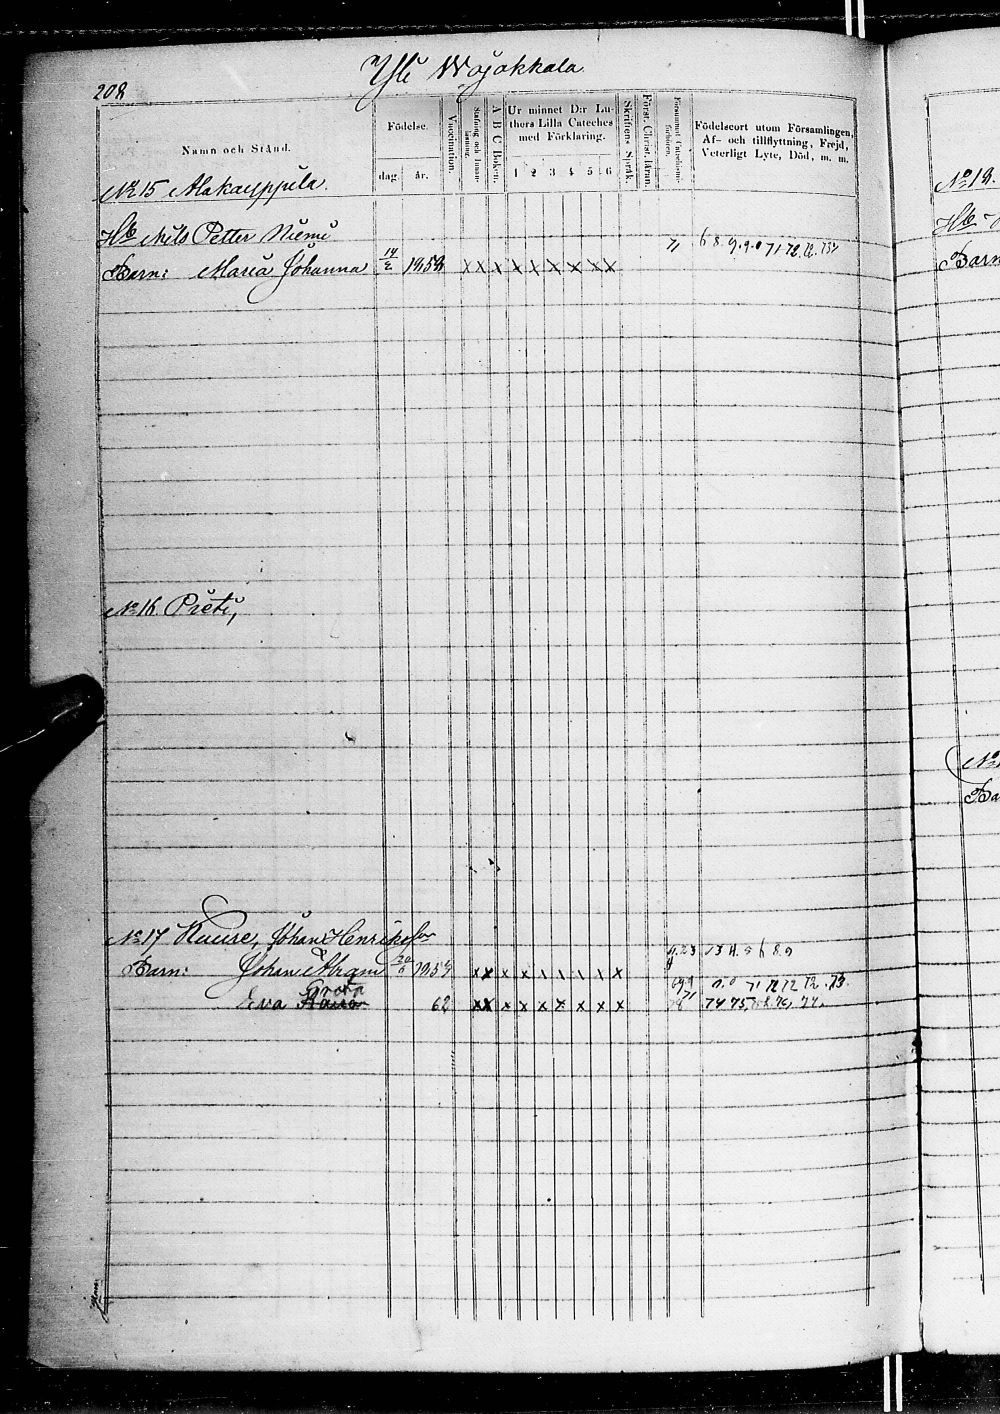 208
Yli Wojakkala
Namn och Stånd.
Födelse.
dag.
år.
Vaccination.
Stafning och Innanläsning.
A B C Boken.
Ur minnet D:r Luthers Lilla Cateches med Förklaring.
1 2 3 4 5 6
Skriftens Språk.
Först. Christ. Läran.
Försummat Catechismiförhören.
Födelseort utom Församlingen, Af- och tillflyttning, Frejd, Veterligt Lyte, Död, m. m.
№ 15 Alakauppila.
Hb Nils Petter Niemi
Barn: Maria Johanna 14/2 1858 x x x x x x x x x 71 68.9.9.0 71 72.
№ 16. Preti,
№ 17 Kuuse, Johan Henriksson
Barn: Johan Abram 20/6 185
Eva 62 x x x x x x x x x 74 75
№ 18.
Hb
Barn
№
Ba